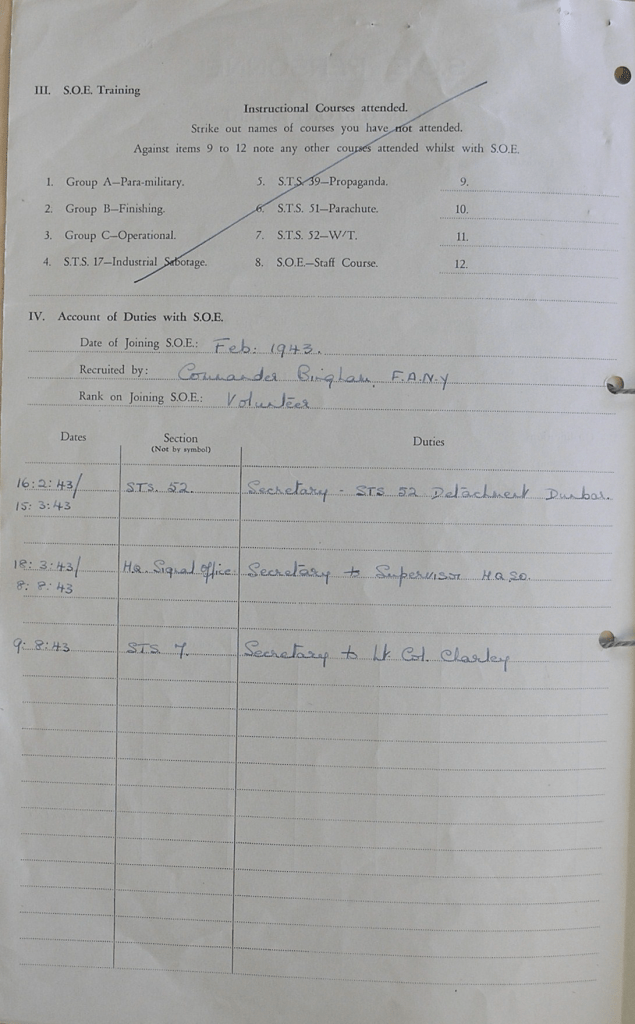 III. S.O.E. Training
Instructional Courses attended.
Strike out names of courses you have not attended.
Against items 9 to 12 note any other courses attended whilst with S.O.E.
1. Group A—Para-military. 5. S.T.S. 39—Propaganda. 9.
2. Group B—Finishing. 6. S.T.S. 51—Parachute. 10.
3. Group C—Operational. 7. S.T.S. 52—W/T. 11.
4. S.T.S. 17—Industrial Sabotage. 8. S.O.E.—Staff Course. 12.
IV. Account of Duties with S.O.E.
Date of Joining S.O.E.: Feb: 1943.
Recruited by: Commander Bingham, F.A.N.Y
Rank on Joining S.O.E.: Volunteer
Dates Section Duties
(Not by symbol)
16:2:43/ STS. 52. Secretary - STS 52 Detachment Dunbar.
15:3:43
18:3:43/ H.Q. Signal Office. Secretary to Supervisor H.Q.SO.
8:8:43
9:8:43 STS 7. Secretary to Lt. Col. Charley